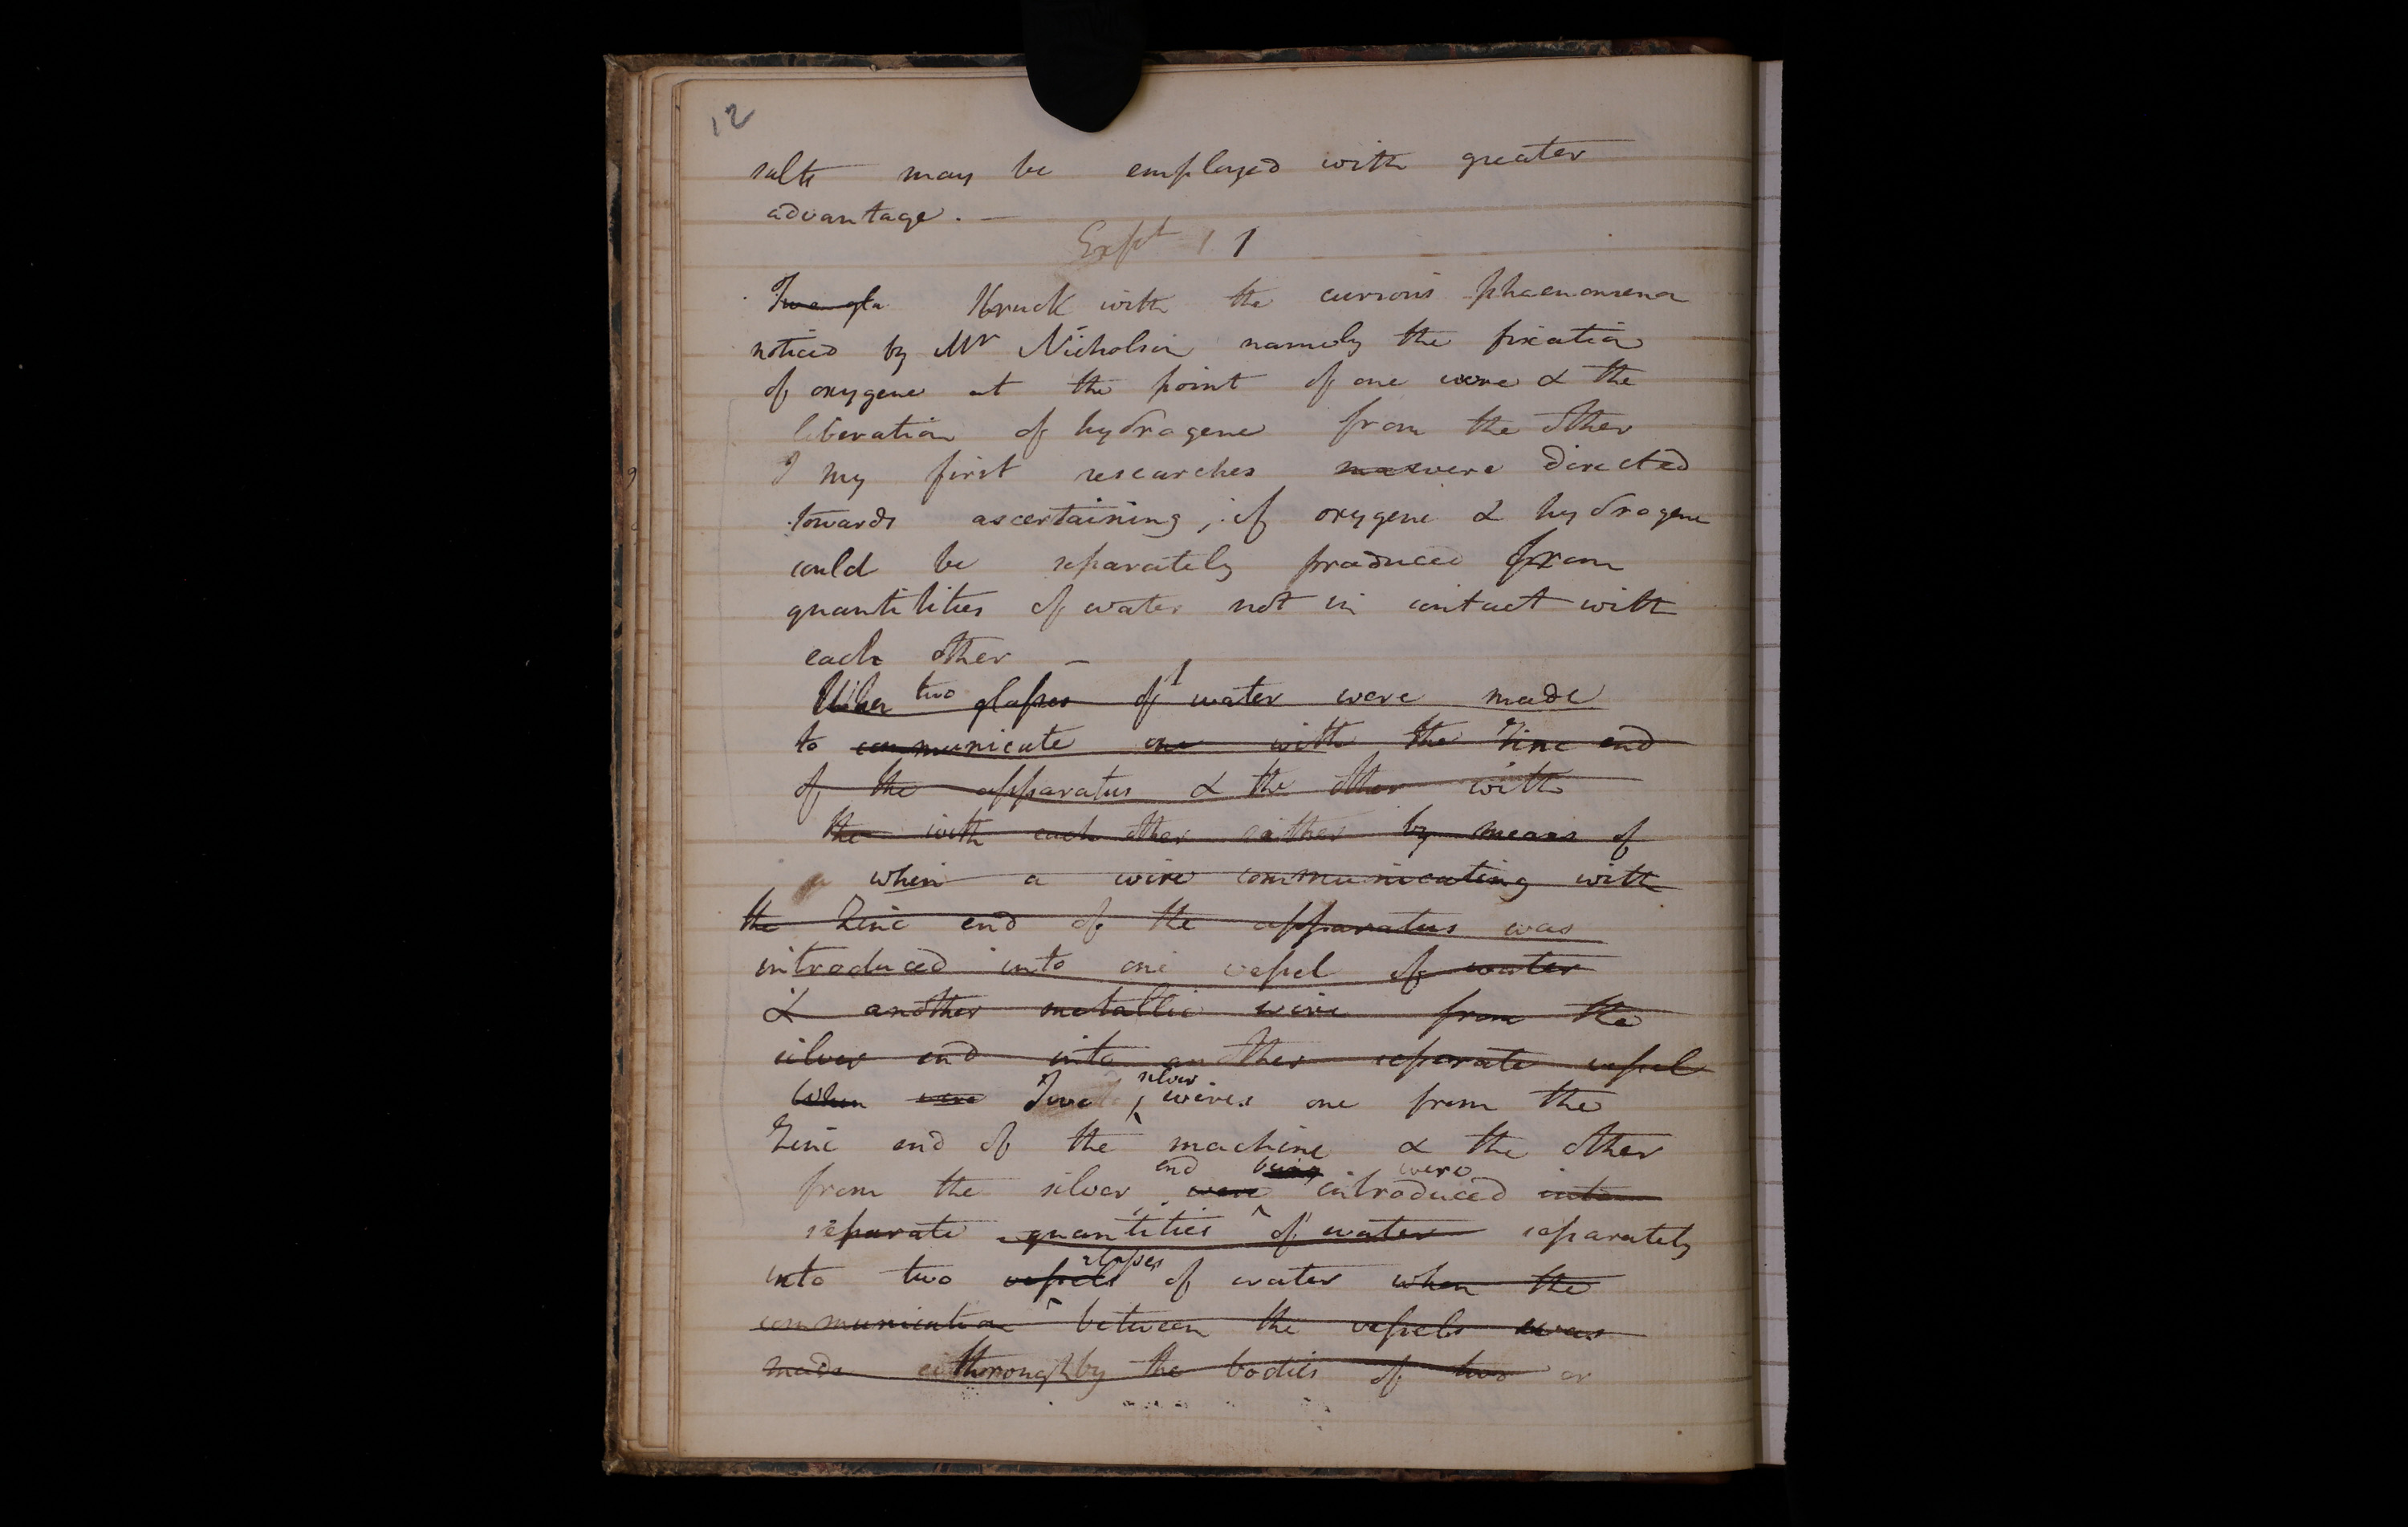 12
salts may be employed with greater
advantage. —
Expt 1 1
Two gla Struck with the curious phaenomena
noticed by Mr Nicholson namely the fixation
of oxygene at the point of one wire & the
liberation of hydrogene from the other
I my first researches were directed
towards ascertaining, if oxygene & hydrogene
could be separately produced from
quantitities of water not in contact with
each other —
When two glasses of 1 water were made
to communicate one with the Zinc end
of the apparatus & the other with
the with each other either by means of
a when a wire communicating with
the Zinc end of the apparatus was
introduced into one vessel of water
& another metallic wire from the
silver end into another separate vessel
silver
When were Two wires one from the
Zinc end of the machine & the other
end being were
from the silver were introduced into
separate quantities of water separately
glasses
into two vessels of water when the
communication between the vessels was
made through by the bodies of two or